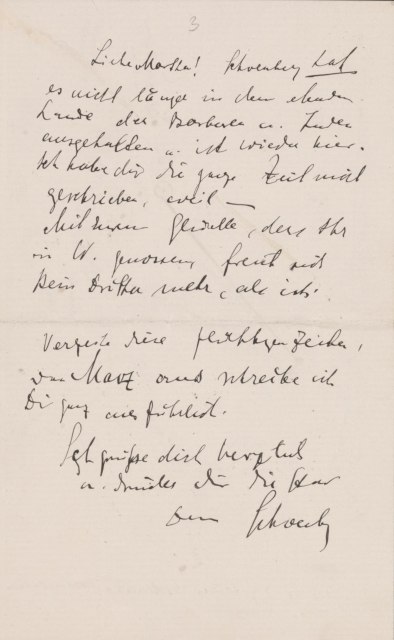 3
Liebe Martha! Schoenberg hat
es nicht länger in dem
Lande der Barbaren u. Juden
ausgehalten u. ist wieder hier.
Ich habe dir die ganze Zeit nicht
geschrieben, weil —
Mit dem, dass Ihr
in W. genossen, freut sich
kein Dritter mehr, als ich.
Verzeihe diese flüchtigen Zeichen,
von aus schreibe ich
Dir ganz ausführlich.
Ich grüsse dich herzlich
u. drücke dir die
dein Schoenbg